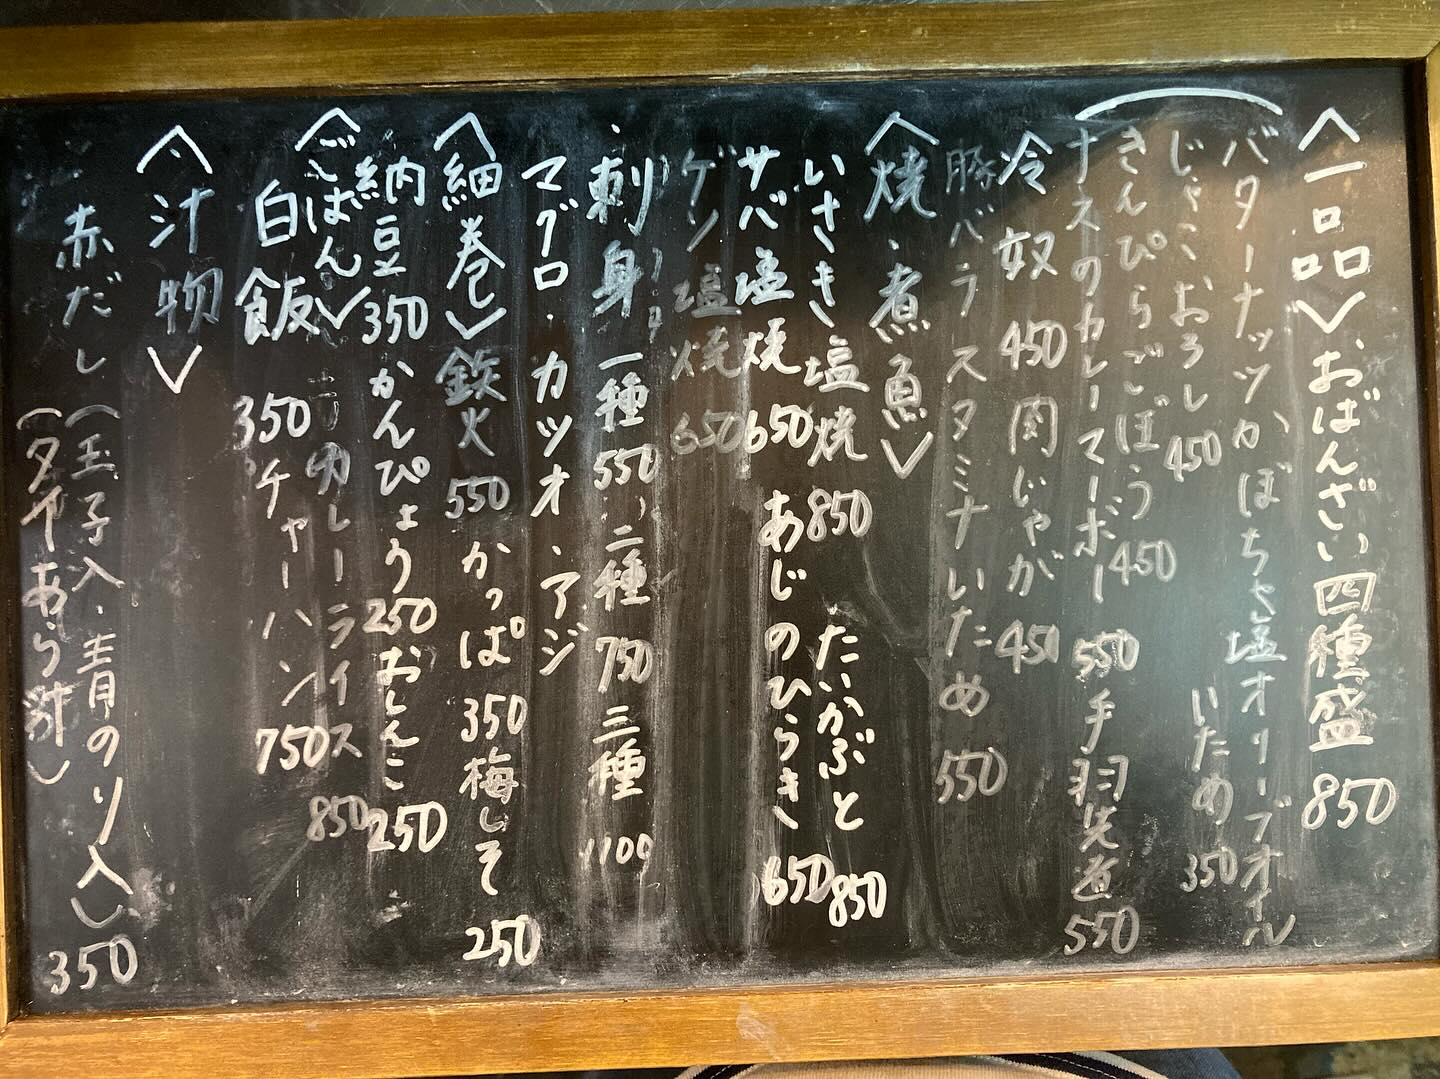 〈一品〉おばんざい四種盛 850
バターナッツかぼちゃ塩オリーブオイル
いため 350
じゃこおろし 450
きんぴらごぼう 450
ナスのカレーマーボー 550 手羽先煮 550
冷奴 450 肉じゃが 450
豚バラスタミナいため 550
〈焼・煮魚〉
いさき塩焼 850 たいかぶと 850
サバ塩焼 650 あじのひらき 650
ゲソ塩焼 650
刺身 一種 550 二種 750 三種 1100
マグロ・カツオ・アジ
〈細巻〉鉄火 550 かっぱ 350 梅しそ 250
納豆 350 かんぴょう 250 おしんこ 250
〈ごはん〉 カレーライス 850
白飯 350 チャーハン 750
〈汁物〉
赤だし (玉子入・青のり入) 350
(タイあら汁)